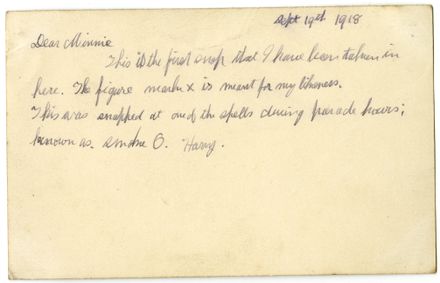 Sept 19st 1918
Dear Minnie
This is the first snap that I have been taken in
here. The figure mark x is meant for my likeness.
This was snapped at one of the spells during parade hours;
known as smoke O. Harry.